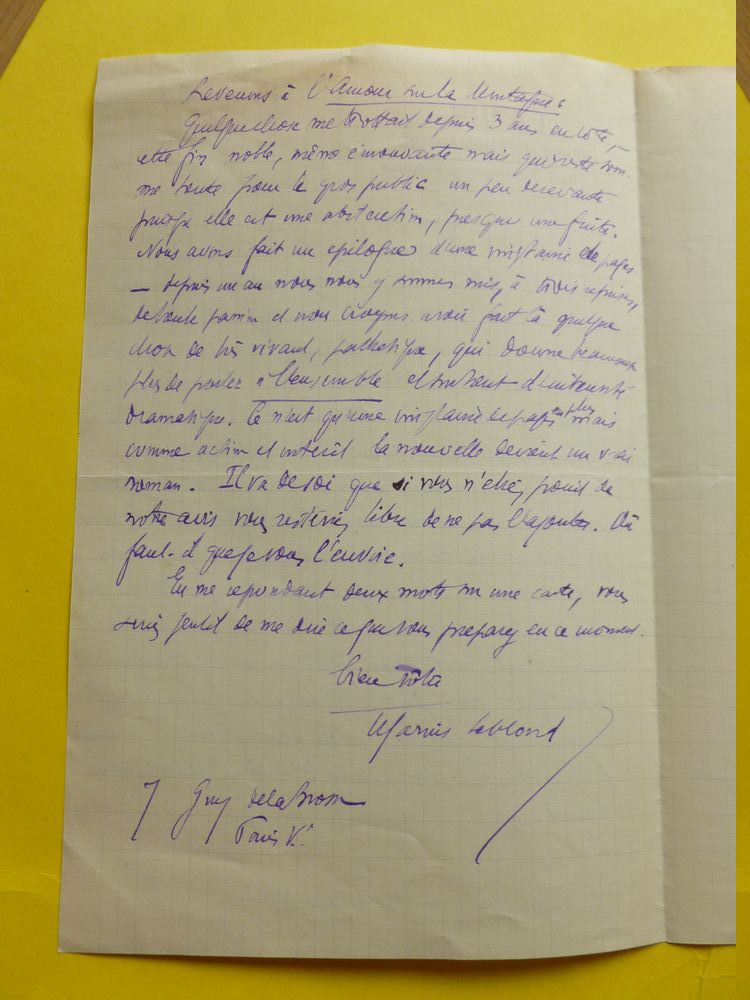 Revenons à l'Amour sur la Montagne :
Quelquechose me trottait depuis 3 ans en tête, –
cette fin noble, même émouvante mais qui reste som-
me toute pour le gros public un peu decevante
puisqu'elle est une abstraction, presque une fuite.
Nous avons fait un epilogue d'une vingtaine de pages
– depuis un an nous nous y sommes mis, à trois reprises,
et nous croyons avoir fait là quelque
chose de très vivant, pathetique, qui donne beaucoup
plus de portée à l'ensemble et surtout d'intensité
dramatique. Ce n'est qu'une vingtaine de pages en plus mais
comme action et intérêt la nouvelle devient un vrai
roman. Il va de soi que si vous n'étiez point de
notre avis vous resteriez libre de ne pas l'ajouter. Où
faut-il que je vous l'envoie.
En me repondant deux mots sur une carte, vous
seriez gentil de me dire ce que vous preparez en ce moment.
bien vôtre
Marius Leblond
7 Guy de la Brosse
Paris V.e